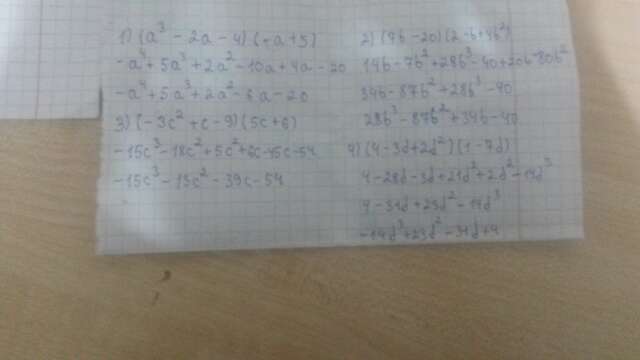 1) (a³ - 2a - 4) (-a + 5)
-a⁴ + 5a³ + 2a² - 10a + 4a - 20
-a⁴ + 5a³ + 2a² - 6a - 20
3) (-3c² + c - 9) (5c + 6)
-15c³ - 18c² + 5c² + 6c - 45c - 54
-15c³ - 13c² - 39c - 54
2) (7b - 20) (2 - b + 4b²)
14b - 7b² + 28b³ - 40 + 20b - 80b²
34b - 87b² + 28b³ - 40
28b³ - 87b² + 34b - 40
4) (4 - 3d + 2d²) (1 - 7d)
4 - 28d - 3d + 21d² + 2d² - 14d³
4 - 31d + 23d² - 14d³
-14d³ + 23d² - 31d + 4